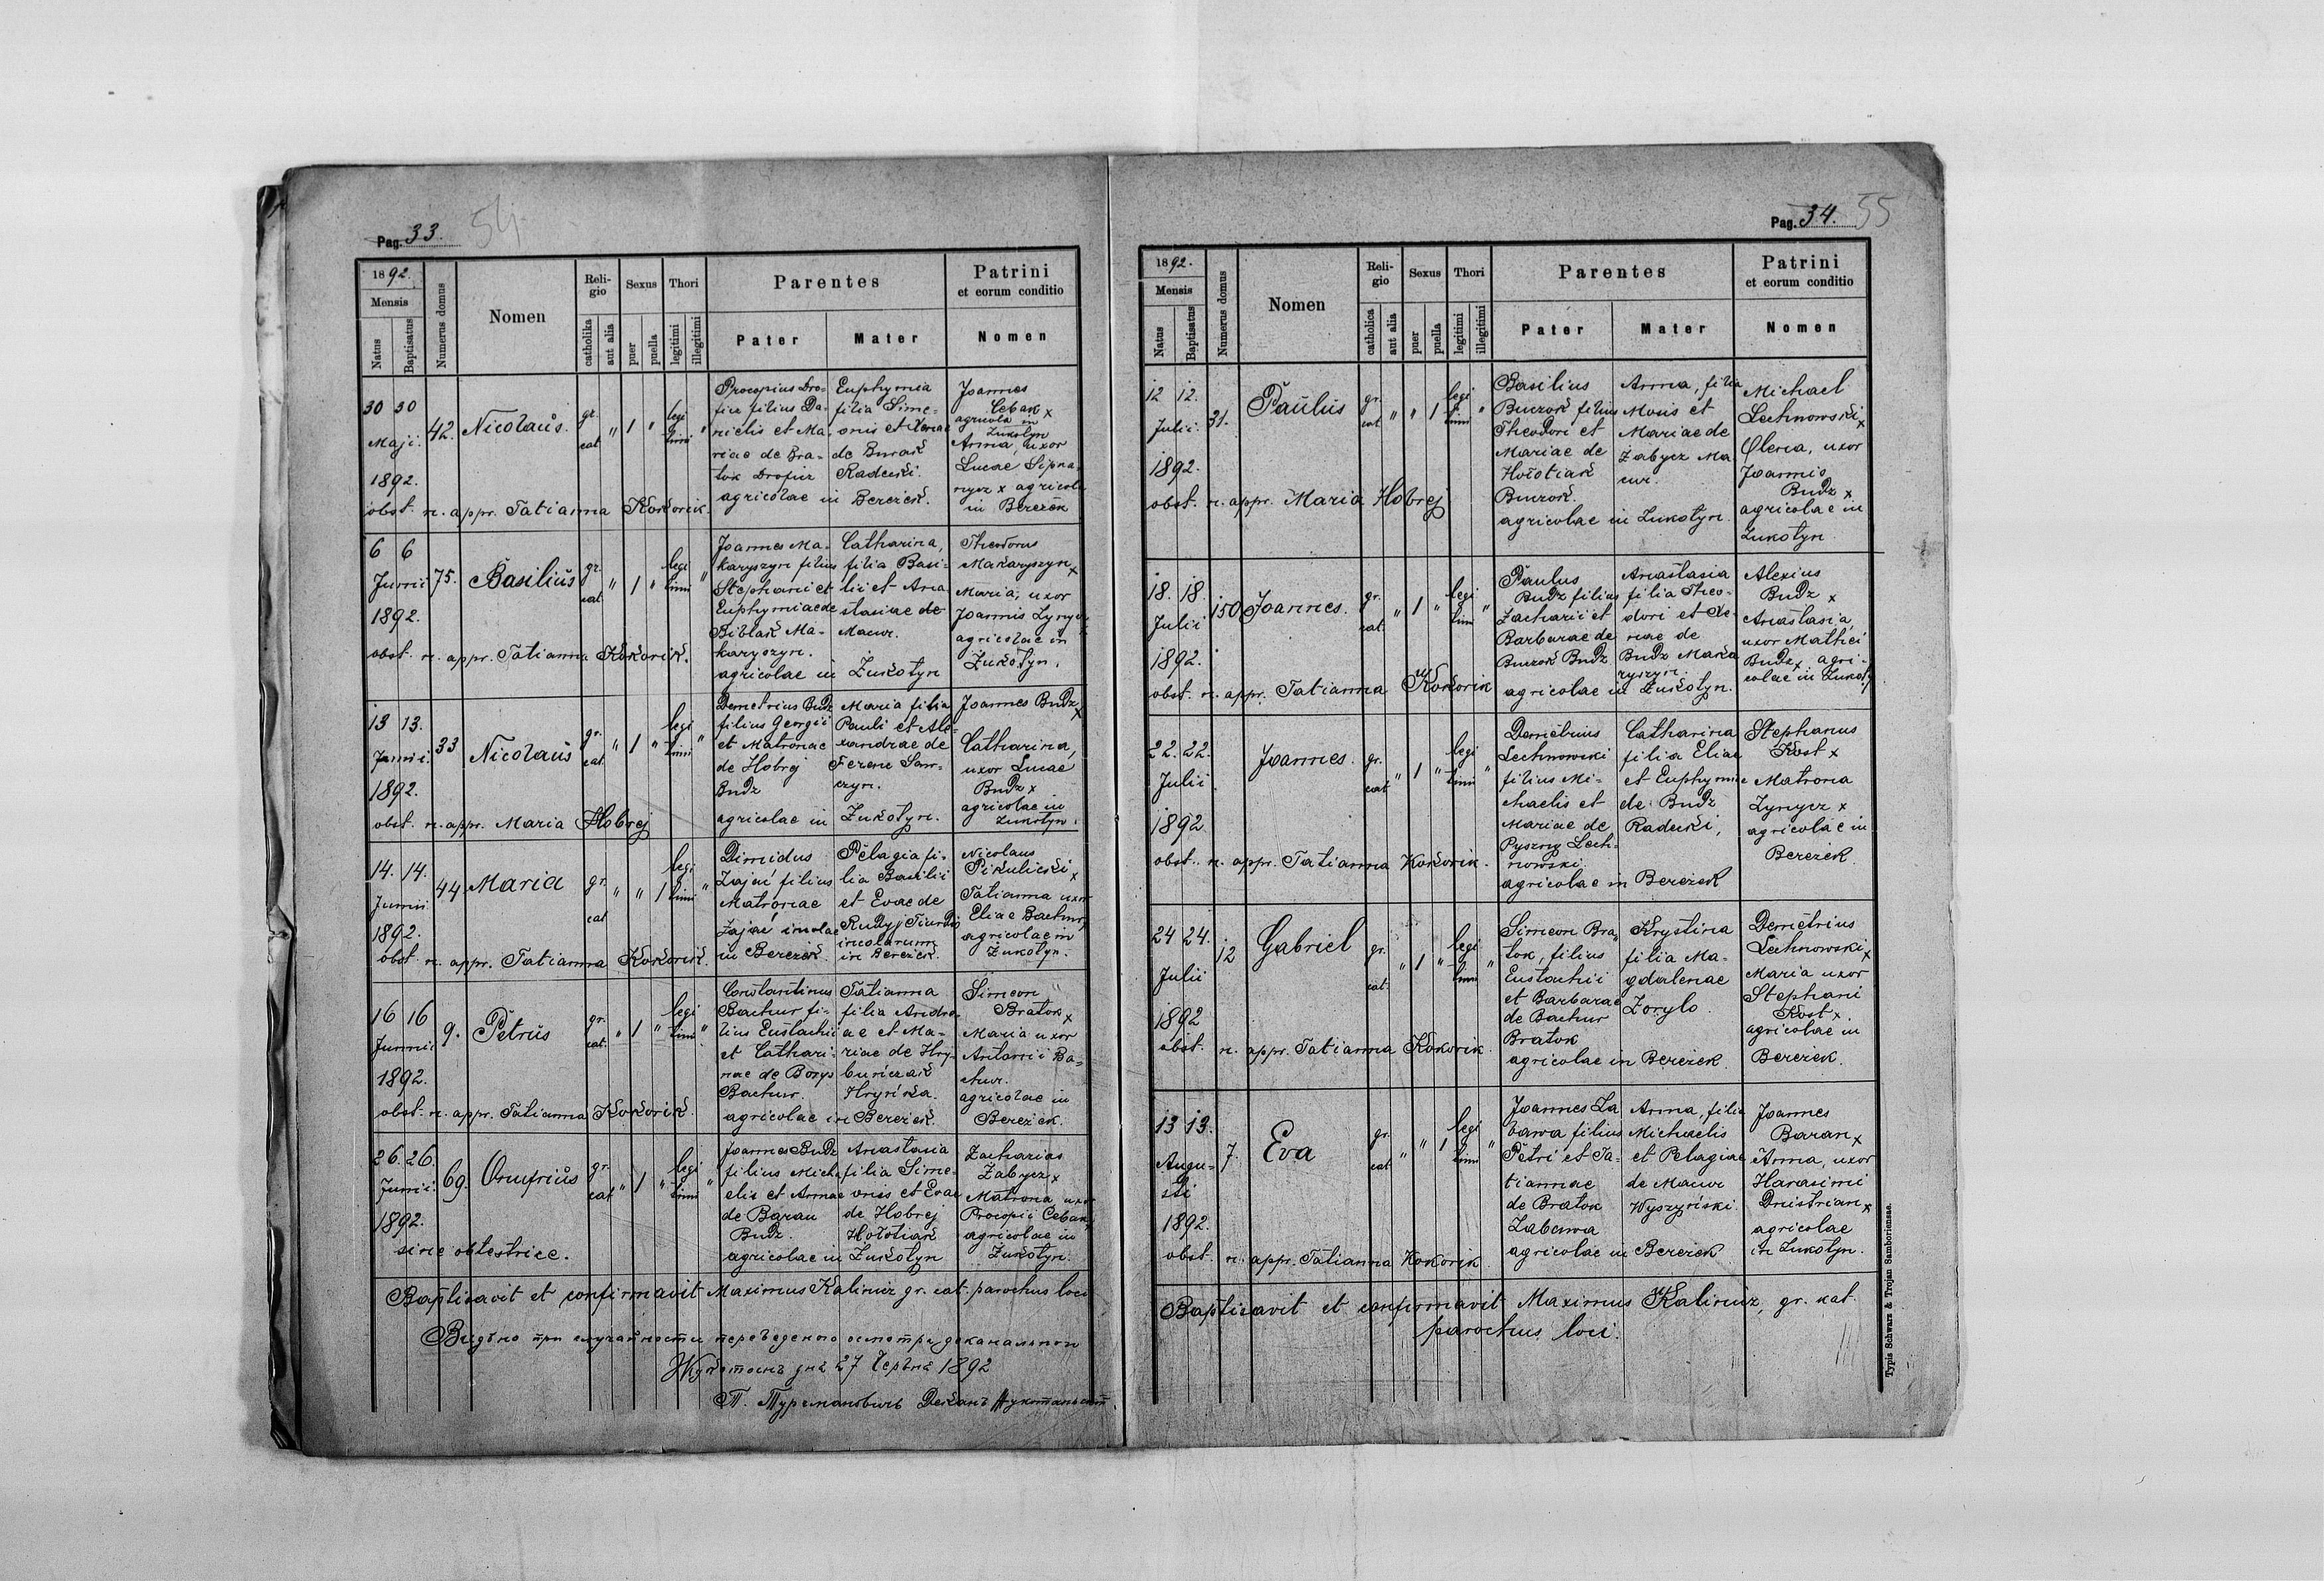 Pag. 33. 54
1892.
Mensis
Natus
Baptisatus
Numerus domus
Nomen
Religio
catholika
aut alia
Sexus
puer
puella
Thori
legitimi
illegitimi
Parentes
Pater
Mater
Patrini
et eorum conditio
Nomen
30 30
Maji.
1892.
42. Nicolaus. gr. cat " 1 " legitimi "
Procopius Dro-
ficz filius Da-
nielis et Ma-
riae de Bra-
tok Droficz
Euphymia
filia Sime-
onis et Xeniae
de Burak
Radeuki.
agricolae in Bereżek.
Joannes
Cebak x
agricola in
Żukotyn
Anna, uxor
Lucae Sipna-
nycz x agricola
in Bereżek
obst. n. appr. Tatianna Kokorik.
6 6
Junii
1892.
75. Basilius gr. cat. " 1 " legitimi "
Joannes Ma-
karyszyn filius
Stephani et
Euphymiae de
Biblak Ma-
karyszyn.
Catharina,
filia Basi-
lii et Ana
stasiae de
Macur.
agricolae in Żukotyn
Theodorus
Makaryszyn x
Maria, uxor
Joannis Żynycz
agricolae in
Żukotyn.
obst. n. appr. Tatianna Kokorik.
13 13.
Junii.
1892.
33 Nicolaus gr. cat. " 1 " legitimi "
Demetrius Budz
filius Georgii
et Matronae
de Hobrej
Budz
Maria filia
Pauli et Ale-
xandrae de
Ferenc San-
czyn.
agricolae in Żukotyn.
Joannes Budz x
Catharina,
uxor Lucae
Budz x
agricolae in
Żukotyn.
obst. n. appr. Maria Hobrej
14. 14.
Junii.
1892.
44 Maria gr. cat " " 1 legitimi "
Dimidus
Zajać filius
Matronae
Zajać incolae
in Bereżek.
Pelagia fi-
lia Basilii
et Evae de
Rudyj Tiurdio
incolarum
in Bereżek.
Nicolaus
Pikulicki x
Tatianna uxor
Eliae Bachur
agricolae in
Żukotyn.
obst. n. appr. Tatianna Kokorik.
16 16
Junii
1892.
9. Petrus gr. cat. " 1 " legitimi "
Constantinus
Bachur fi-
lius Eustachii
et Cathari-
nae de Borys
Bachur.
Tatianna
filia Andre-
ae et Ma-
riae de Hry-
curiczak
Hryńka.
agricolae in Bereżek.
Simeon
Bratok x
Maria uxor
Antonii Ba-
chur.
agricolae in
Bereżek.
obst. n. appr. Tatianna Kokorik.
26. 26.
Junii.
1892.
69. Onufrius gr. cat " 1 " legitimi "
Joannes Budz
filius Micha
elis et Annae
de Baran
Budz.
Anastasia
filia Sime-
onis et Evae
de Hobrej
Hołotiak
agricolae in Żukotyn
Zacharias
Zabycz x
Matrona uxor
Procopii Cebak x
agricolae in
Żukotyn.
sine obstetrice.
Baptisavit et confirmavit Maximus Kalinicz gr. cat. parochus loci
Видѣно при случайности переведеного осмотра деканального
Жукотинъ дня 27 Червня 1892
Деканъ Жукотиньскій
Pag. 34. 55
1892.
Mensis
Natus
Baptisatus
Numerus domus
Nomen
Religio
catholica
aut alia
Sexus
puer
puella
Thori
legitimi
illegitimi
Parentes
Pater
Mater
Patrini
et eorum conditio
Nomen
12 12.
Julii.
1892.
31. Paulus gr. cat " " 1 legitimi "
Basilius
Buczok filius
Theodori et
Mariae de
Hołotiak
Buczok.
Anna, filia
Mosis et
Mariae de
Zabycz Ma
cur.
agricolae in Żukotyn.
Michael
Lechnowski x
Olena, uxor
Joannis
Budz x
agricolae in
Żukotyn
obst. n. appr. Maria Hobrej
18. 18.
Julii
1892.
150 Joannes. gr. cat. " 1 " legitimi "
Paulus
Budz filius
Zacharii et
Barbarae de
Buczok Budz
Anastasia
filia Theo-
dori et Xe-
niae de
Budz Maka
ryszyn
agricolae in Żukotyn.
Alexius
Budz x
Anastasia,
uxor Mathei
Budz x agri-
colae in Żukoty
obst. n. appr. Tatianna Kokorik
22. 22.
Julii
1892
Joannes. gr. cat " 1 " legitimi "
Demetrius
Lechnowski
filius Mi-
chaelis et
Mariae de
Pyszny Lech-
nowski
Catharina
filia Eliae
et Euphymiae
de Budz
Radeuki,
agricolae in Bereżek
Stephanus
Kost x
Matrona
Żynycz x
agricolae in
Bereżek.
obst. n. appr. Tatianna Kokorik.
24 24.
Julii
1892
12 Gabriel gr. cat. " 1 " legitimi "
Simeon Bra-
tok, filius
Eustachii
et Barbarae
de Bachur
Bratok
Krystina
filia Ma-
gdalenae
Zorylo.
agricolae in Bereżek.
Demetrius
Lechnowski x
Maria uxor
Stephani
Kost x.
agricolae in
Bereżek.
obst. n. appr. Tatianna Kokorik.
13 13.
Augu-
sti
1892.
7. Eva gr. cat " " 1 legitimi "
Joannes Za
bawa filius
Petri et Ta-
tiannae
de Bratok
Zabawa
Anna, filia
Michaelis
et Pelagiae
de Macur
Wyszyński.
agricolae in Bereżek
Joannes
Baran x
Anna, uxor
Harasimi
Dnistrian x
agricolae
in Żukotyn.
obst. n. appr. Tatianna Kokorik.
Baptisavit et confirmavit Maximus Kalinicz, gr. cat.
parochus loci.
Typis Schwarz & Trojan Samboriensae.